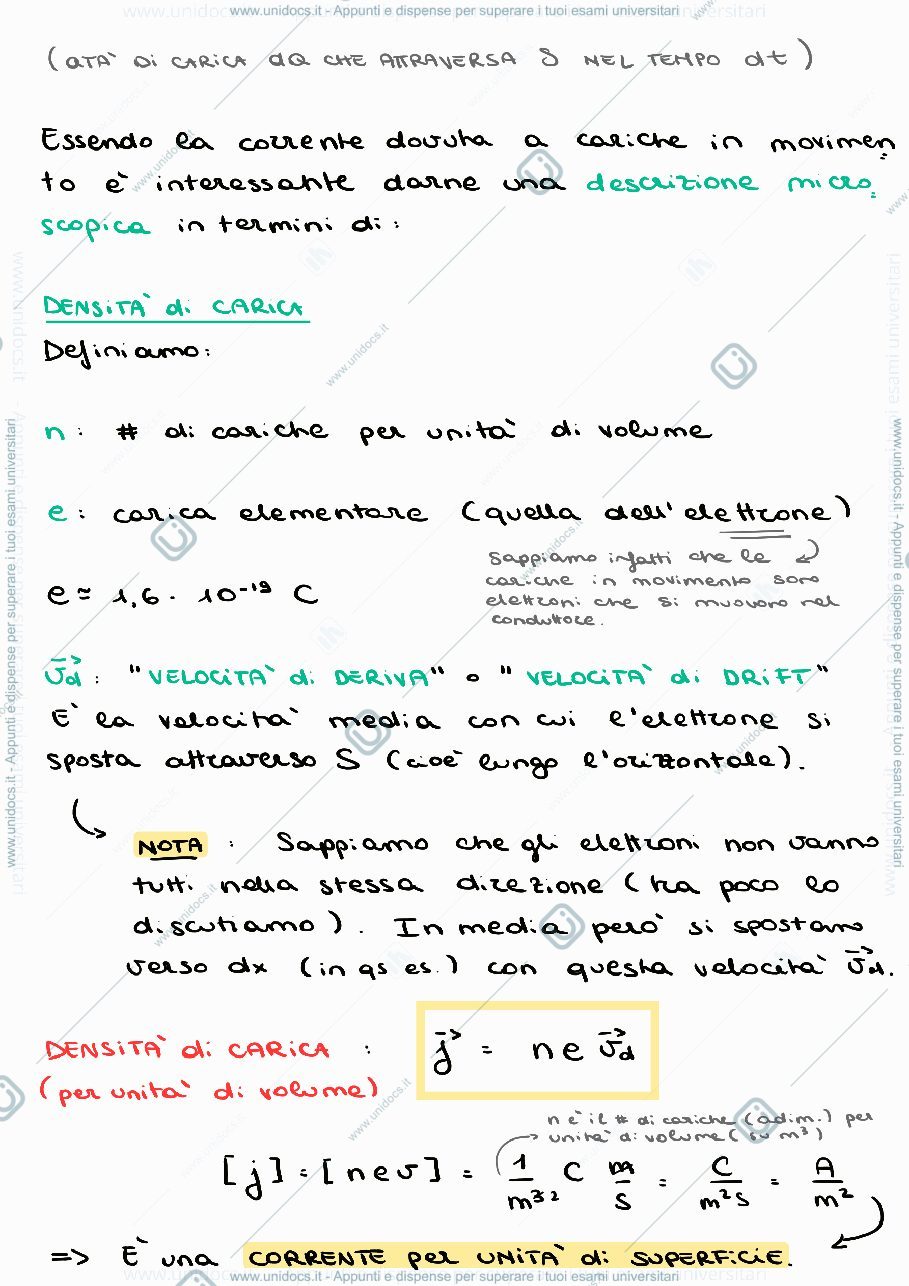 www.unidocs.it - Appunti e dispense per superare i tuoi esami universitari
(QTA' Di CARICA dQ CHE ATTRAVERSA S NEL TEMPO dt)
Essendo la corrente dovuta a cariche in movimen
to è interessante darne una descrizione micro
scopica in termini di:
DENSITA' di CARICA
Definiamo:
n: # di cariche per unità di volume
e: carica elementare (quella dell'elettrone)
Sappiamo infatti che le
cariche in movimento sono
elettroni che si muovono nel
conduttore.
e ≈ 1,6 · 10⁻¹⁹ C
v⃗d: "VELOCITA' di DERIVA" o "VELOCITA' di DRIFT"
E' la velocità media con cui l'elettrone si
sposta attraverso S (cioè lungo l'orizzontale).
NOTA: Sappiamo che gli elettroni non vanno
tutti nella stessa direzione (tra poco lo
discutiamo). In media però si spostano
verso dx (in qs es.) con questa velocità v⃗d.
DENSITA' di CARICA :
(per unità di volume)
j⃗ = n e v⃗d
n è il # di cariche (adim.) per
unità di volume (su m³)
[j] = [nev] = 1/m³² C m/s = C/m²s = A/m²
=> E' una CORRENTE per UNITA' di SUPERFICIE.
www.unidocs.it - Appunti e dispense per superare i tuoi esami universitari
www.unidocs.it - Appunti e dispense per superare i tuoi esami universitari
www.unidocs.it - Appunti e dispense per superare i tuoi esami universitari